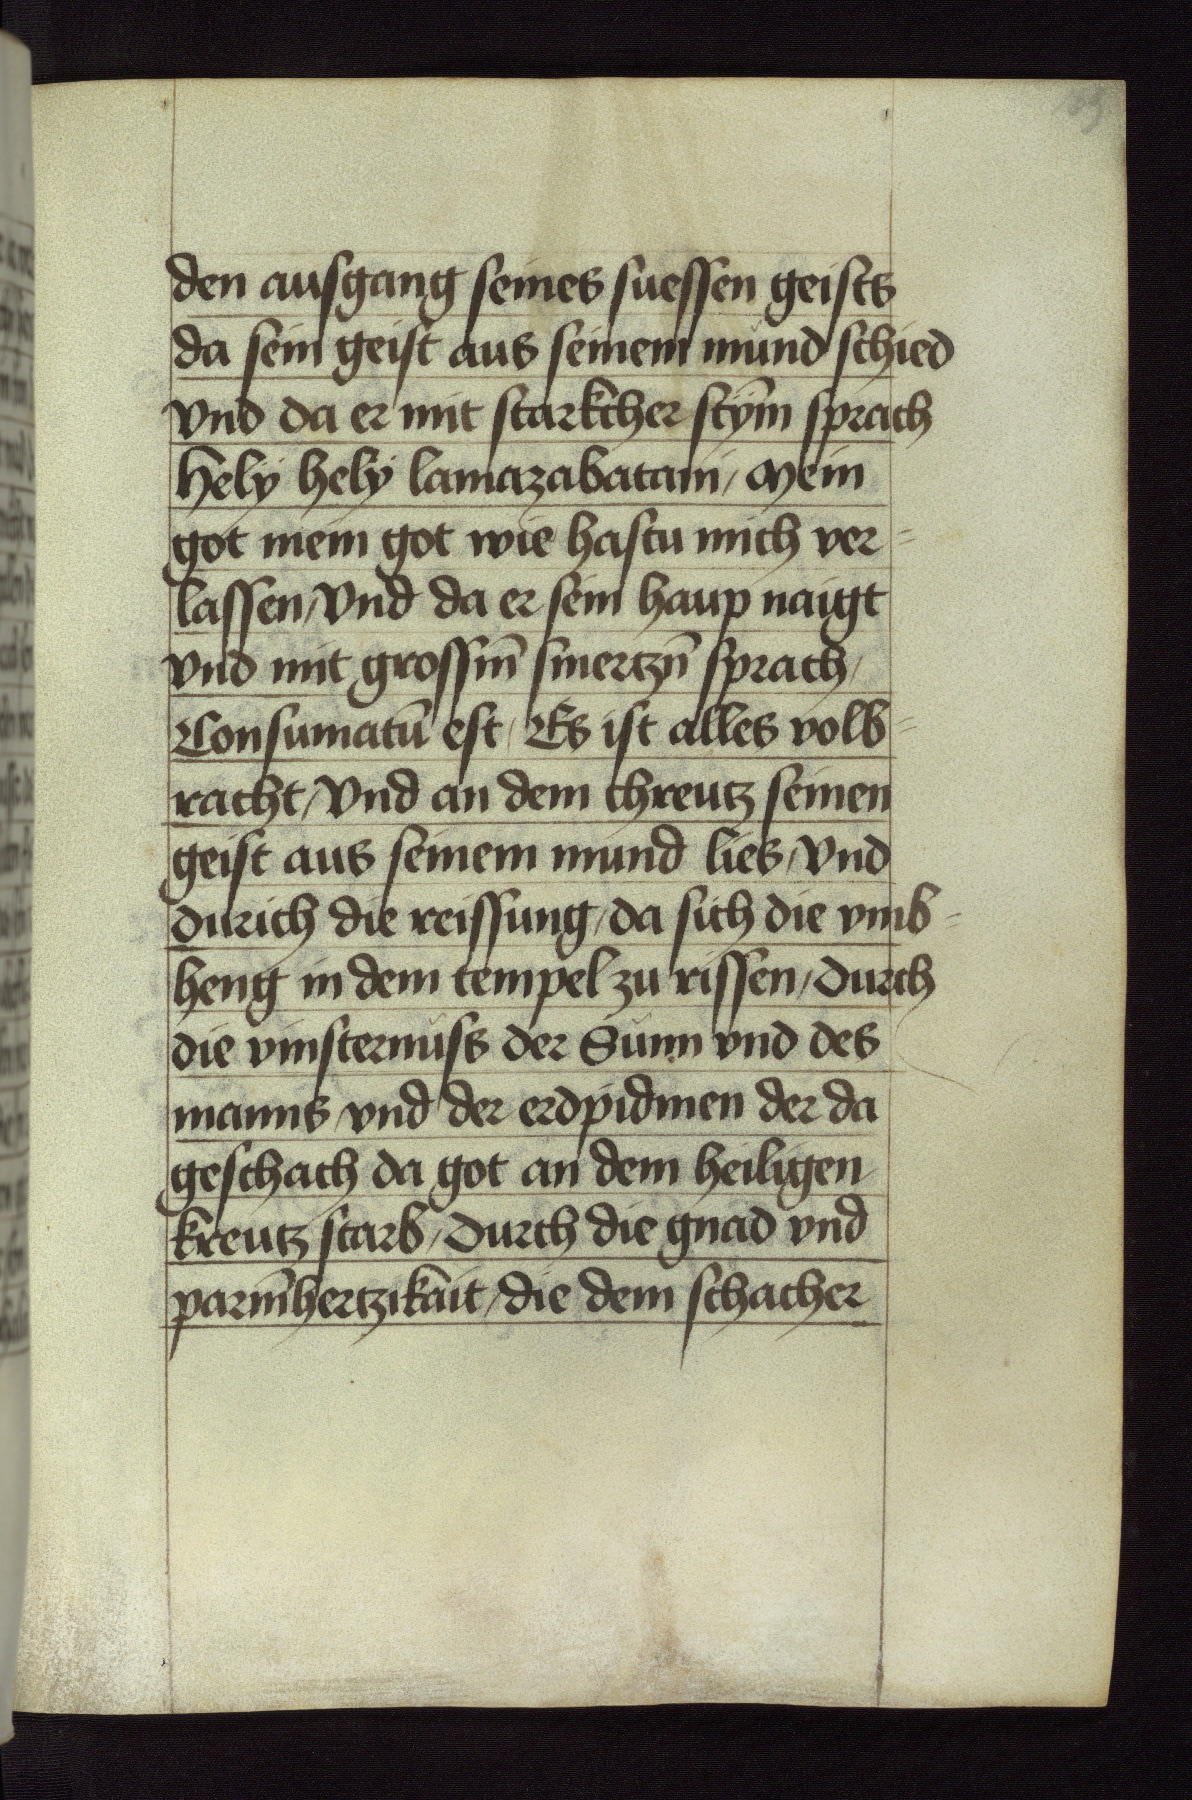 den ausgang seines suessen geists
da sein geist aus seinem mund schied
vnd da er mit starkcher stym̄ sprach
Hely hely lamazabatani / Mein
got mein got wie hastu mich ver-
lassen / Vnd da er sein haup naigt
vnd mit grossm̄ smertzn̄ sprach /
Consumatū est / Es ist alles volb-
racht / Vnd an dem chreutz seinen
geist aus seinem mund lies / Vnd
durich die reissung / da sich die vmb-
heng in dem tempel zu rissen / Durch
die vinsternüss der Sunn vnd des
manns vnd der erdpidmen der da
geschach da got an dem heiligen
kreutz starb / Durch die gnad vnd
parm̄hertzikāit / die dem schacher